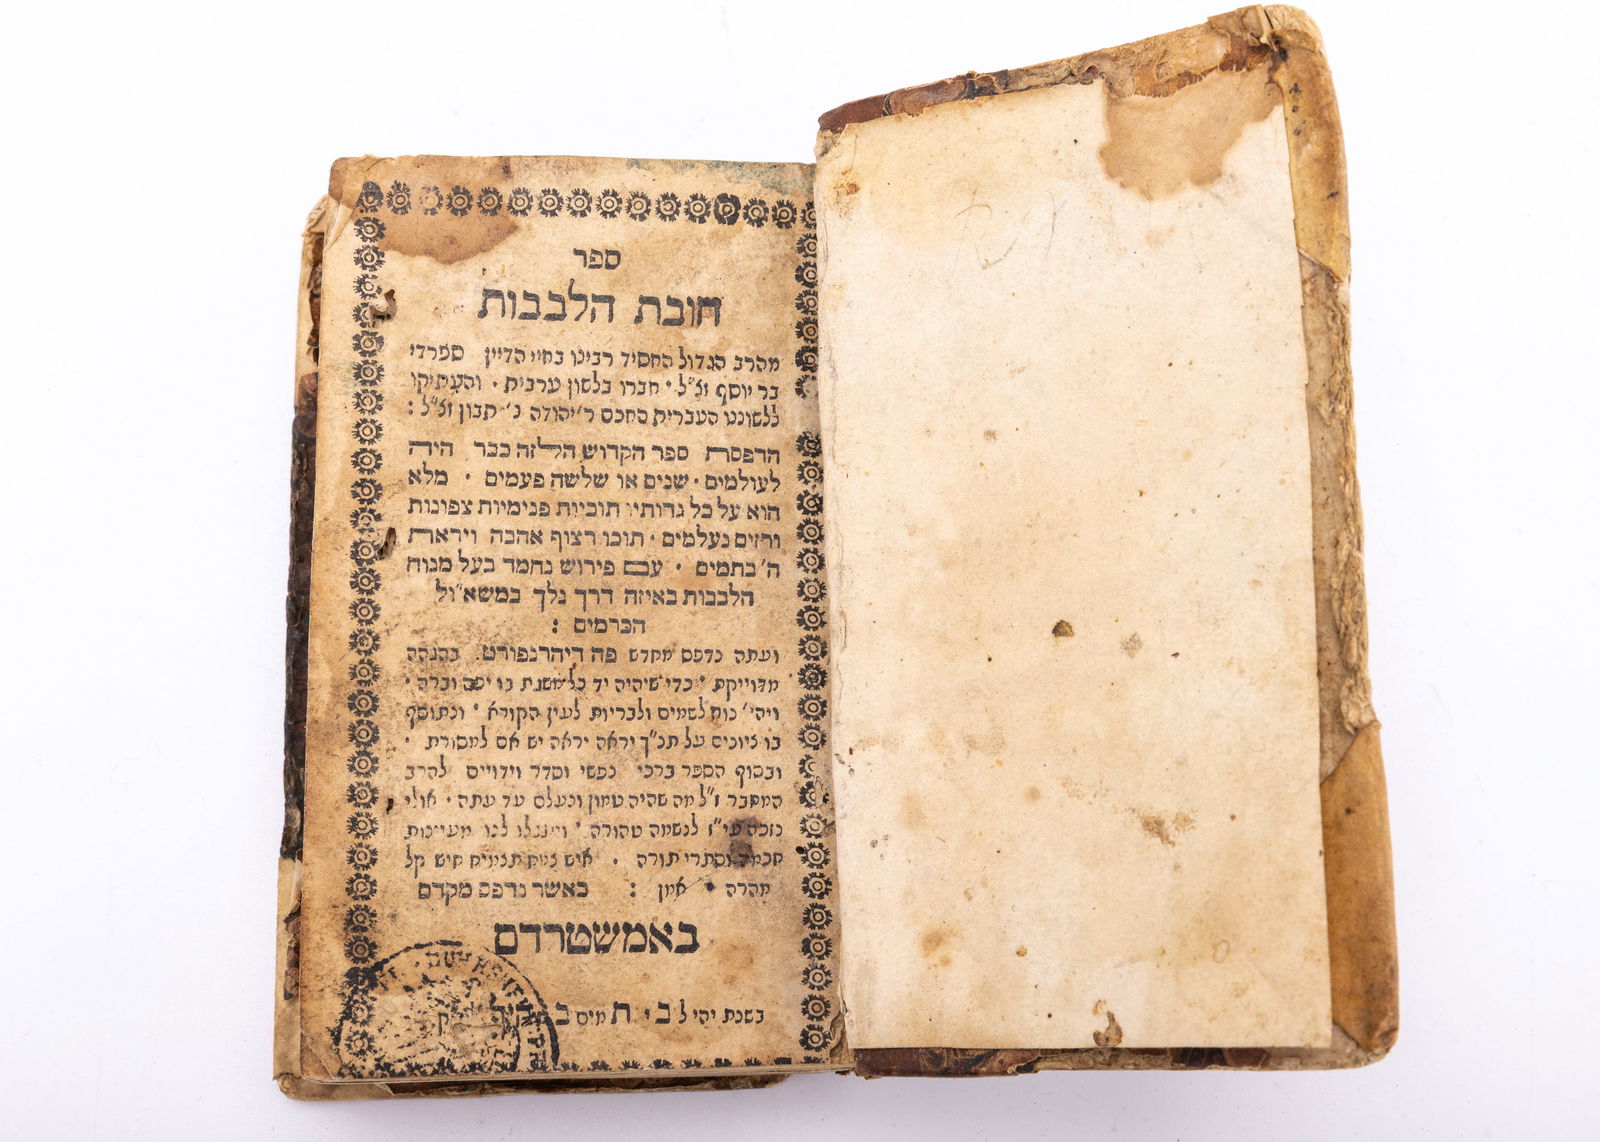 ספר
חובת הלבבות
מהרב הגדול החסיד רבינו בחיי הדיין ספרדי
בר יוסף זצ״ל · חברו בלשון ערבית · והעתיקו
ללשוננו העברית החכם ר׳ יהודה ן׳ תבון זצ״ל :
הדפסת ספר הקדוש הלזה כבר היה
לעולמים · שנים או שלשה פעמים · מלא
הוא על כל גדותיו תוכיות פנימיות צפונות
ורזים נעלמים · תוכו רצוף אהבה ויראת
ה׳ בתמים · עם פירוש נחמד בעל מנוח
הלבבות באיזה דרך נלך במשא״ול
הכרמים :
ועתה נדפס מחדש פה דיהרנפורט בהגהה
מדוייקת · כדי שיהיה יד כל משגת בו יפה וברה ·
ויהי׳ נוח לשמים ולבריות לעין הקורא · ונתוסף
בו ציונים על תנ״ך יראה יראה יש אם למסורת ·
ובסוף הספר ברכי נפשי וסדר וידויים להרב
המחבר ז״ל מה שהיה טמון ונעלם עד עתה · אולי
נזכה עי״ז לנשמה טהורה · ויתגלו לנו מעיינות
חכמה וסתרי תורה · חיש קל
מהרה · אמן : כאשר נדפס מקדם
באמשטרדם
בשנת יהי ל